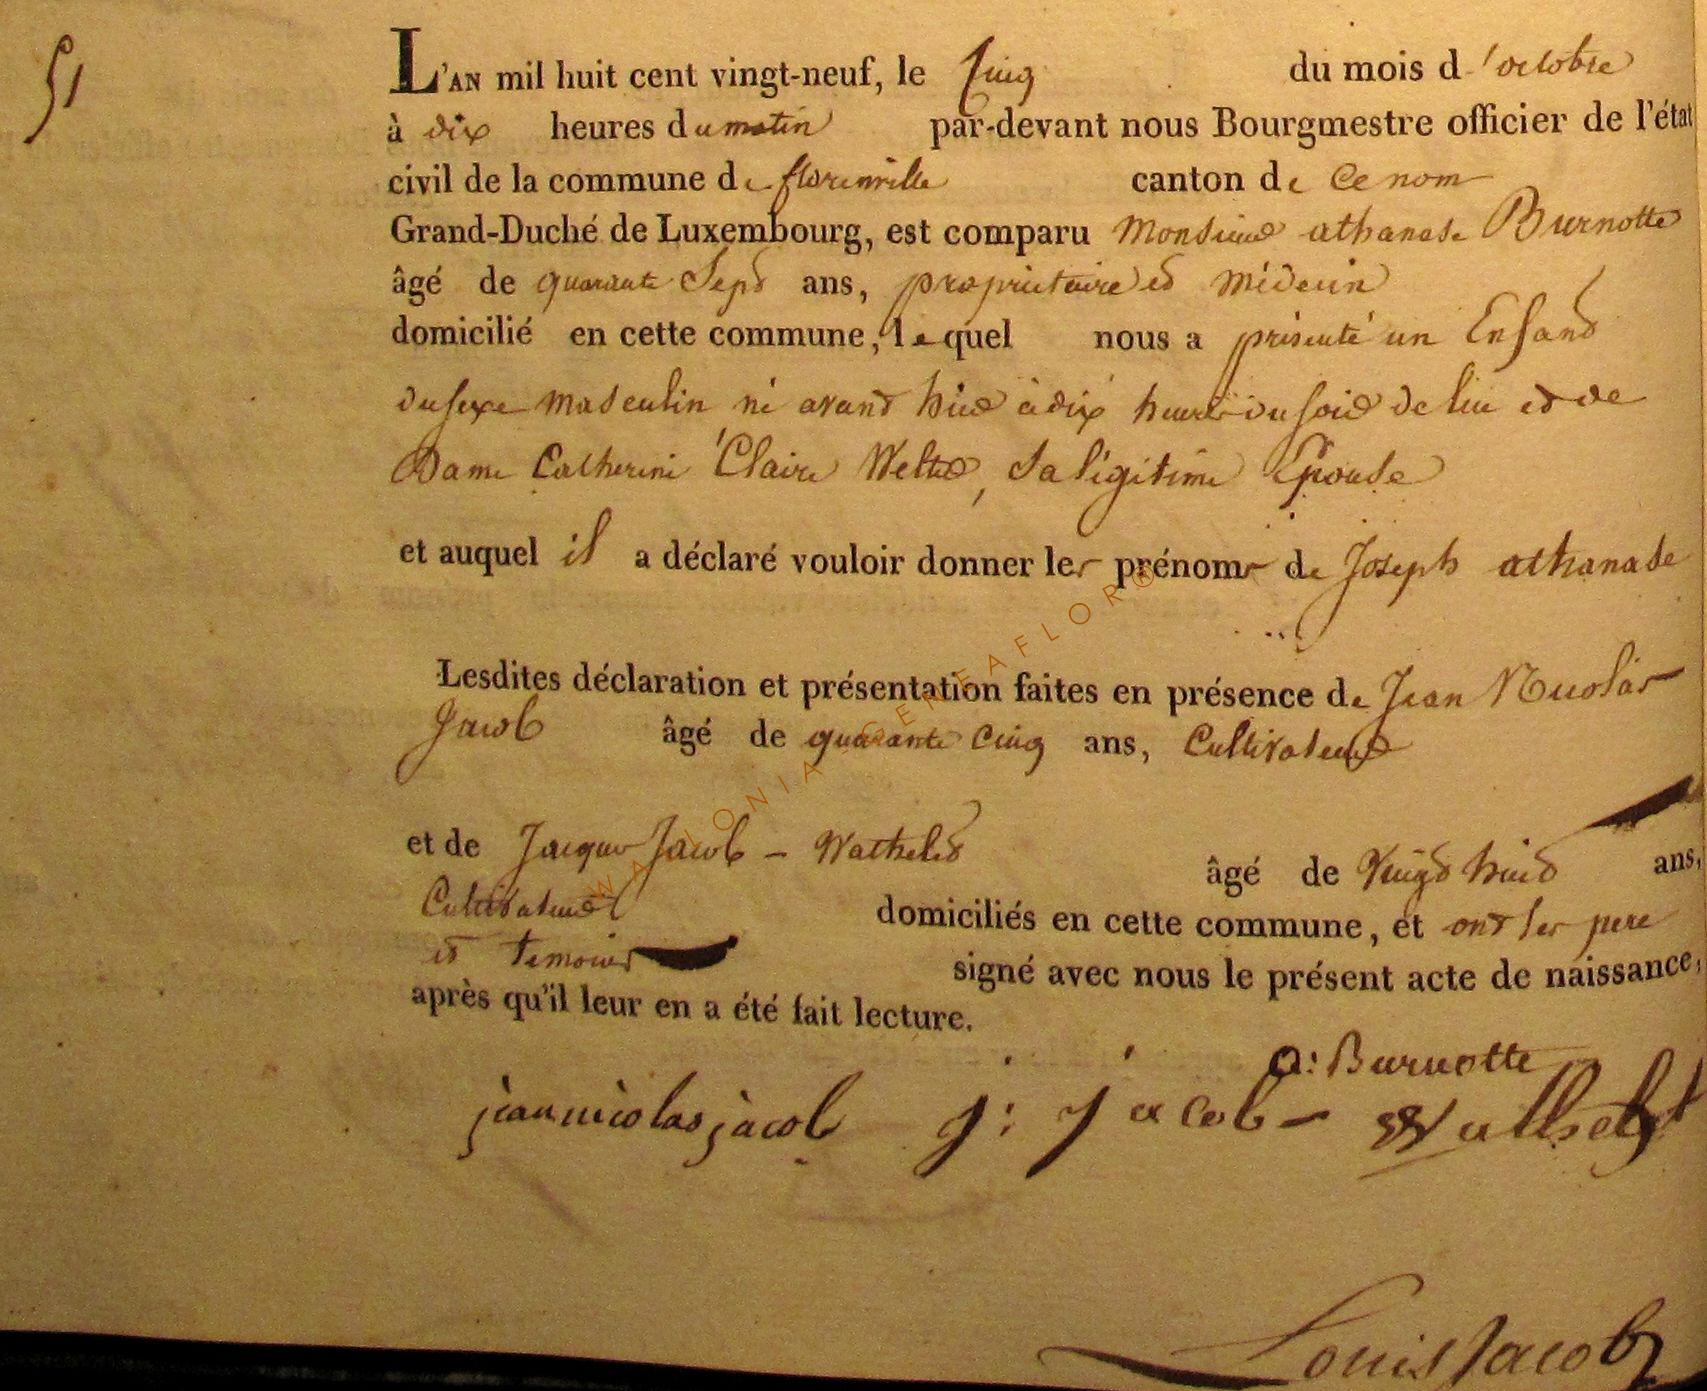 51
L'AN mil huit cent vingt-neuf, le cinq du mois d'octobre
à dix heures du matin par-devant nous Bourgmestre officier de l'état
civil de la commune de florenville canton de ce nom
Grand-Duché de Luxembourg, est comparu Monsieur athanase Burnotte
âgé de quarante Sept ans, proprietaire et Médecin
domicilié en cette commune, lequel nous a présenté un Enfant
du sexe masculin né avant hier à dix heures du soir de lui et de
Dame Catherine Claire Welter, sa légitime Epouse
et auquel il a déclaré vouloir donner les prénoms de Joseph athanase
Lesdites déclaration et présentation faites en présence de Jean Nicolas
Jacob âgé de quarante cinq ans, Cultivateur
et de Jacques Jacob - Wathelet âgé de vingt huit ans,
Cultivateur domiciliés en cette commune, et ont les pere
et temoins signé avec nous le présent acte de naissance,
après qu'il leur en a été fait lecture.
a: Burnotte
jean nicolas jacob j: jacob - Wathelet
Louis Jacob
WALLONIA GENEAFLOR©